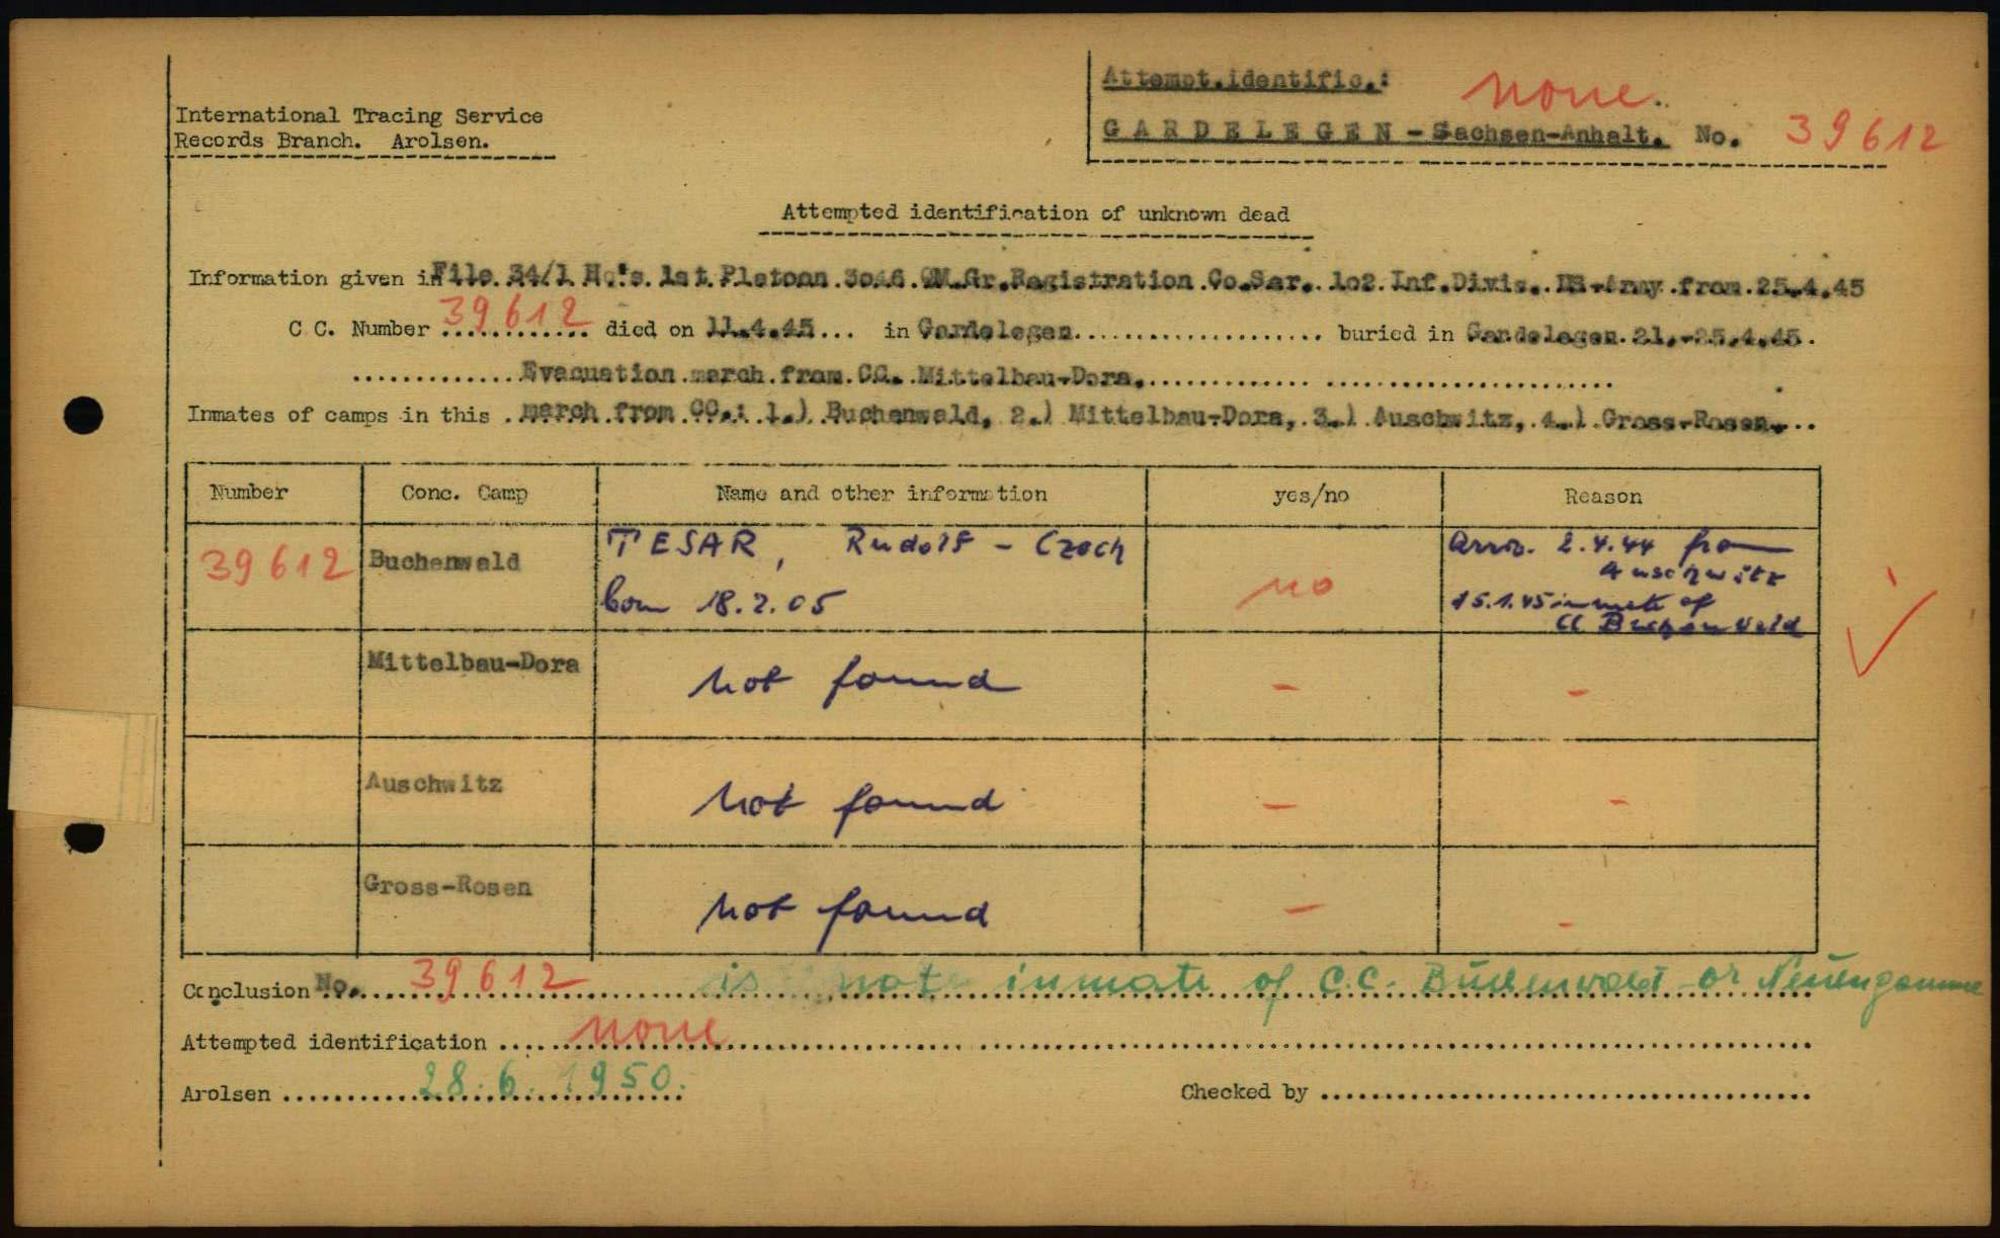 International Tracing Service
Records Branch. Arolsen.
Attempt.identific.: none.
GARDELEGEN - Sachsen-Anhalt. No. 39612
Attempted identification of unknown dead
Information given in File 34/1 Hq's. 1st Platoon 3046 QM.Gr.Registration Co.Ser. 102 Inf.Divis. US-Army from 25.4.45
C C. Number 39612 died on 11.4.45... in Gardelegen.................... buried in Gardelegen 21.-25.4.45.
.............Evacuation march from CC. Mittelbau-Dora.............. .......................
Inmates of camps in this .march from CC.: 1.) Buchenwald, 2.) Mittelbau-Dora, 3.) Auschwitz, 4.) Gross-Rosen...
Number Conc. Camp Name and other information yes/no Reason
39612 Buchenwald TESAR, Rudolf - Czech
born 18.2.05
no
Arriv. 2.4.44 from
Auschwitz
15.1.45 inmate of
CC Buchenwald
Mittelbau-Dora not found - -
Auschwitz not found - -
Gross-Rosen not found - -
Conclusion No. 39612 is not inmate of C.C. Buchenwald or Neuengamme
Attempted identification none
Arolsen 28.6.1950.
Checked by ......................................